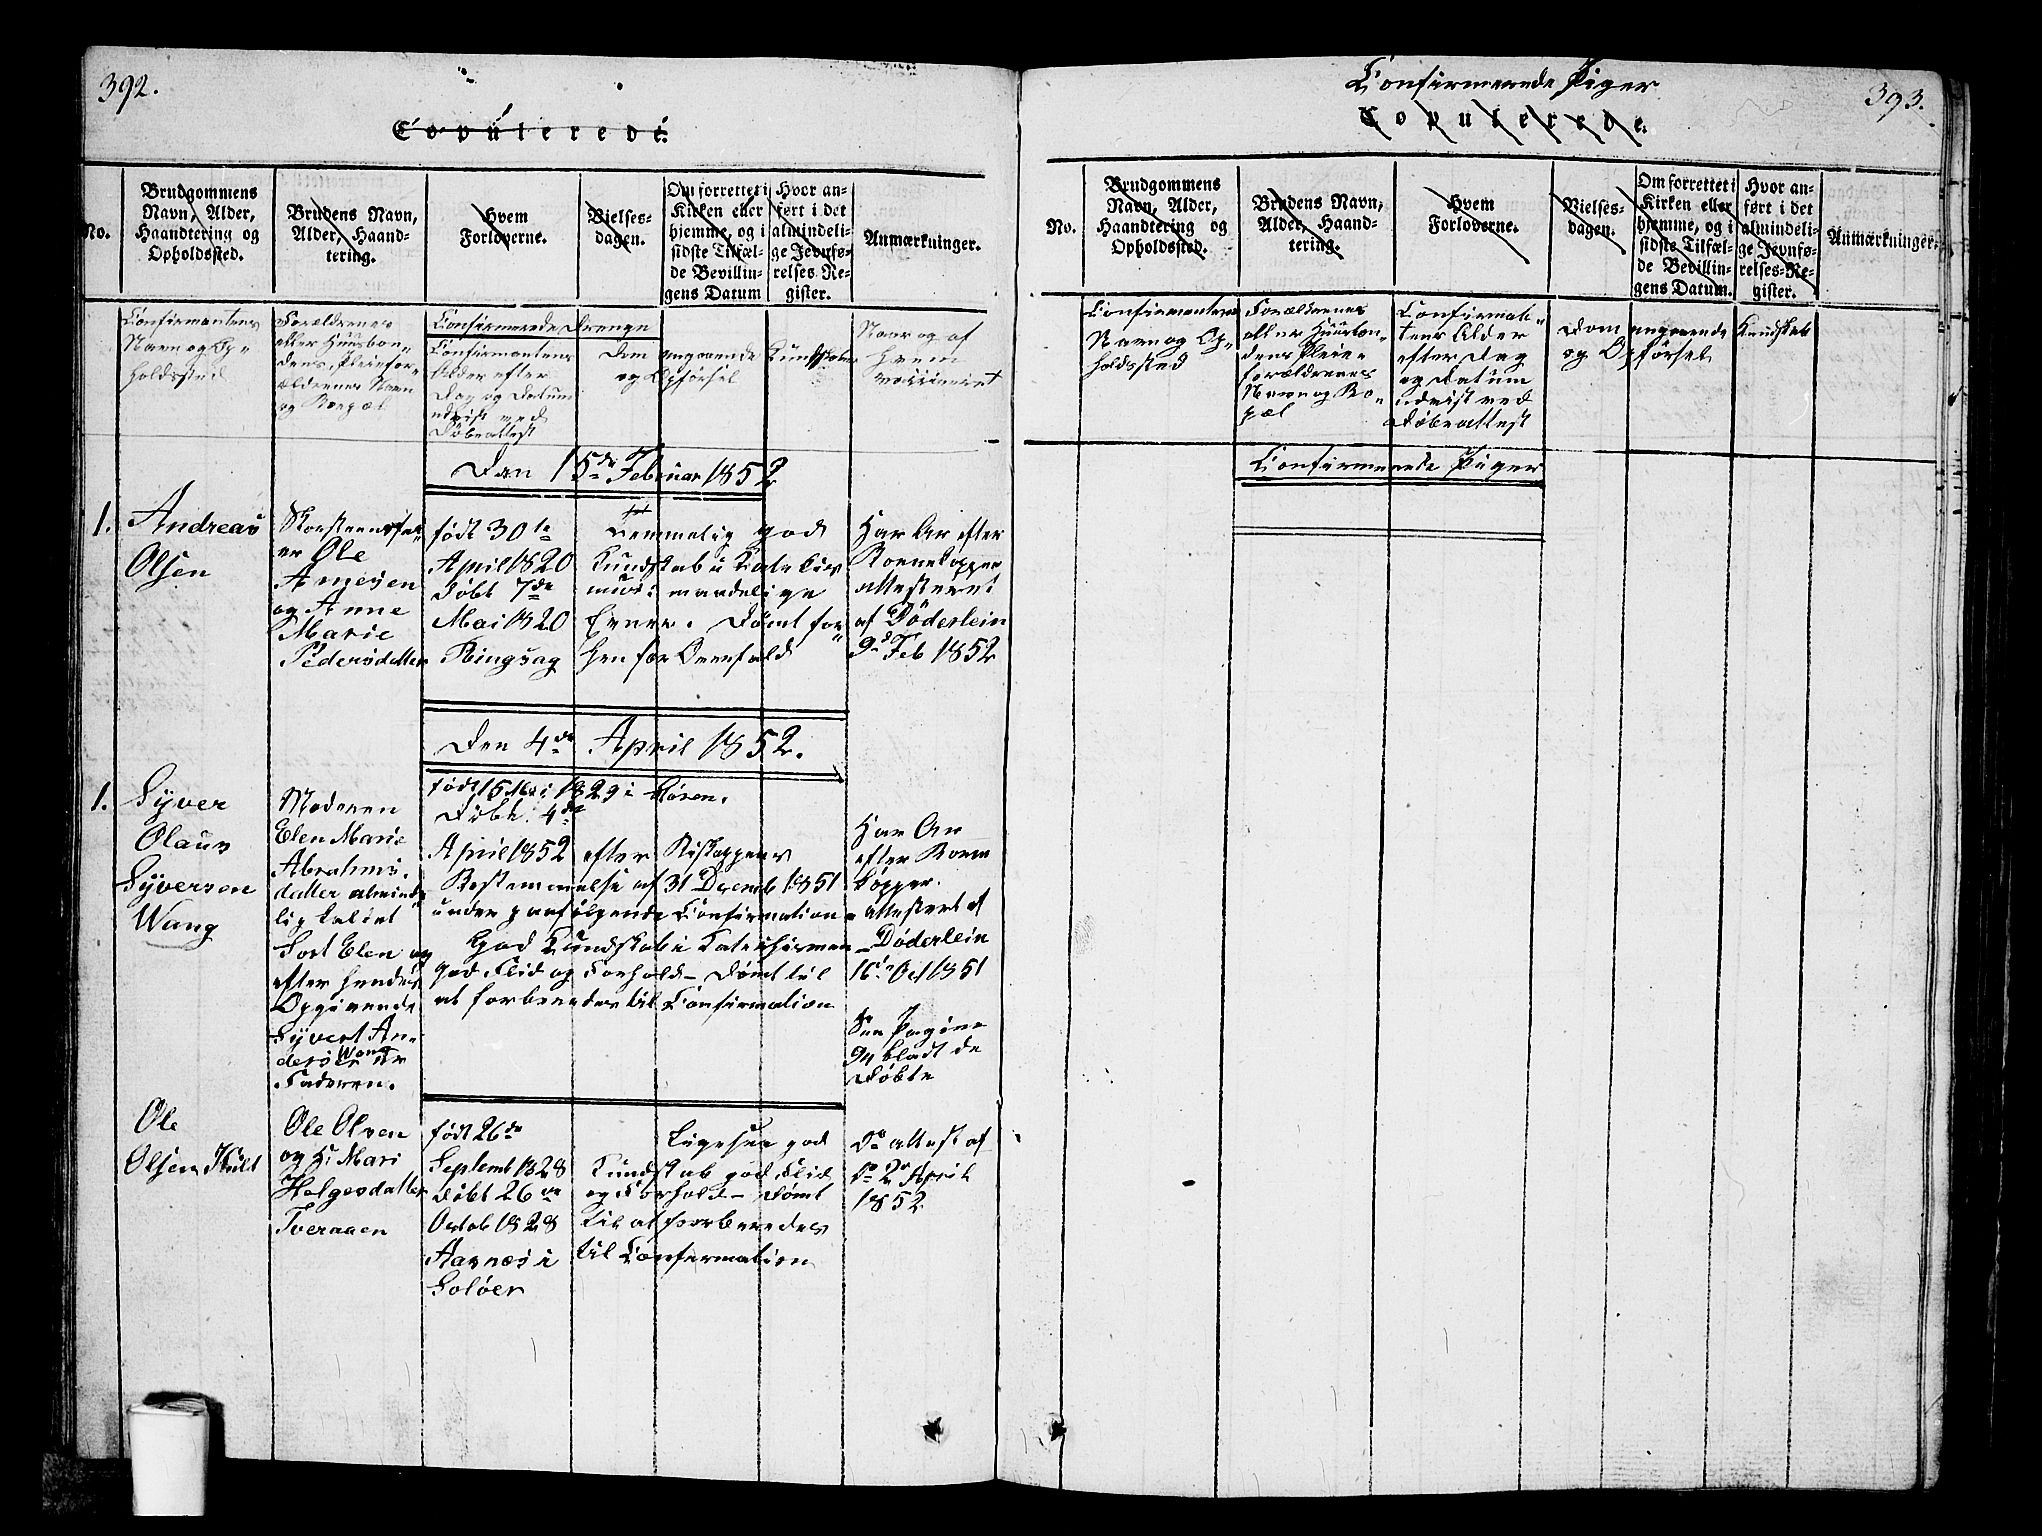 392.
Copulerede.
No.
Brudgommens
Navn, Alder,
Haandtering og
Opholdssted.
Brudens Navn,
Alder, Haand-
tering.
Hvem
Forloverne.
Vielses-
dagen.
Om forrettet i
Kirken eller
hjemme, og i
sidste Tilfæl-
de Bevillin-
gens Datum
Hvor an-
ført i det
almindeli-
ge Jevnfø-
relses Re-
gister.
Anmærkninger.
Confirmantens
Navn og Op-
holdssted
Forældrenes
eller Huusbon-
dens, Pleiefor-
ældrenes Navn
og Bopæl
Confirmerede Drenge
Confirmantens
Alder efter
Dag og Datum
udvist ved
Døbeattest
Dom angaaende Kundskaber
og Opførsel
Naar og af
Hvem
vaccineret
Den 15de Februar 1852
1.
Andreas
Olsen
Skorsteensfei-
er Ole
Arnesen
og Anne
Marie
Pedersdatter
født 30te
April 1820
døbt 7de
Mai 1820
Ringsag
Temmelig god
Kundskab i Katekis
mus: maadelige
Evner. Dømt for-
hen for Overfald
Har Ar efter
Koekopper
attesteret
af Døderlein
9de Feb 1852
Den 4de April 1852.
1.
Syver
Olaus
Syversen
Wang
Moderen
Elen Marie
Abrahms-
datter almind-
lig kaldet
Sort Elen og
efter hendes
Opgivende
Syvert An-
dersen Wang er
Faderen.
født 15 Mai 1829 i
Døbt: 4de
April 1852 efter Biskoppens
Bestemmelse af 31 Decemb 1851
under paafølgende Confirmation
God Kundskab i Katechismen
god Flid og Forhold - Dømt til
at forberedes til Confirmation
Har Ar
efter Koem
kopper.
attestert af
Døderlein
16de Oct 1851
See Pagina
94 bladt de
Døbte
Ole
Olsen Kuld
Ole Olsen
og H. Mari
Helgesdatter
Tveraaen
født 26de
Septemb 1828
døbt 26de
Octob 1828
Aasnæs i
Soløer
Ligesaa god
Kundskab god Flid
og Forhold - Dømt
til at forberedes
til Confirmation
Do attest af
Do 2 April
1852
393.
Confirmerede Piger
Copulerede.
No.
Brudgommens
Navn, Alder,
Haandtering og
Opholdssted.
Brudens Navn,
Alder, Haand-
tering.
Hvem
Forloverne.
Vielses-
dagen.
Om forrettet i
Kirken eller
hjemme, og i
sidste Tilfæl-
de Bevillin-
gens Datum.
Hvor an-
ført i det
almindeli-
ge Jevnfø-
relses-Re-
gister.
Anmærkninger.
Confirmantens
Navn og Op-
holdssted
Forældrenes
eller Huusbon-
dens Pleie-
forældrenes
Navn og Bo-
pæl
Confirman-
tens Alder
efter Dag
og Datum
udvist ved
Døbeattest
Dom angaaende Kundskab
og Opførsel
Confirmerede Piger